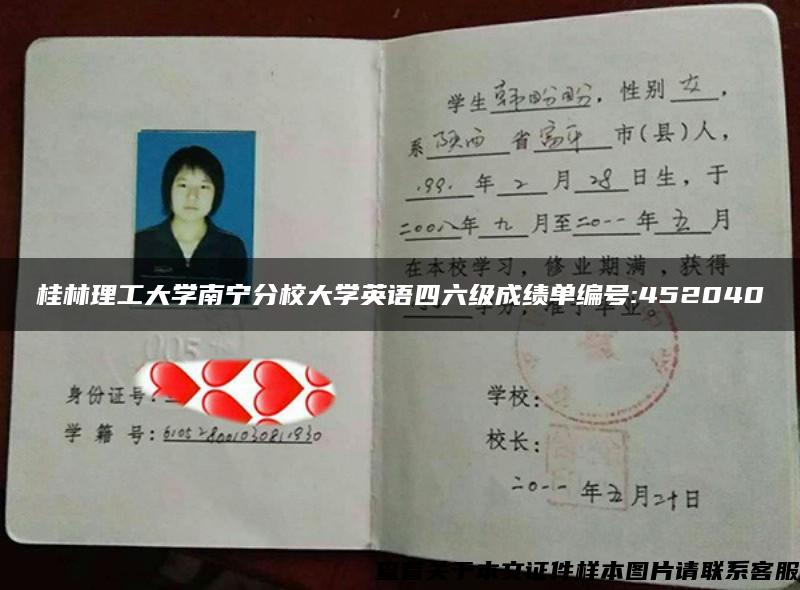 学生韩盼盼，性别女，
系陕西省富平市(县)人，
1991年2月28日生，于
二00八年九月至二0一一年五月
在本校学习，修业期满，获得
桂林理工大学南宁分校大学英语四六级成绩单编号:452040
学分，准予毕业。
005
身份证号:
学籍号:610528001030811930
学校:
校长:
二0一一年五月二十日
查看关于本文证件样本图片请联系客服